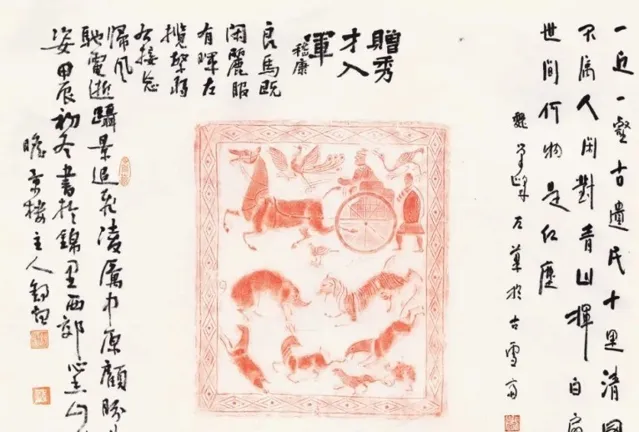 一丘一壑古遺民十里清風
不隔人闲對青山揮白扇
世间何物是红塵
魏學峰左筆於古雪齋
贈秀
才入
軍
嵇康
良馬既
閑麗服
有暉左
攬繁弱
右接忘
歸風
馳電逝躡景追飛凌厲中原顧盼生
姿甲辰初冬書於錦里西郊窯
瞻京樓主人